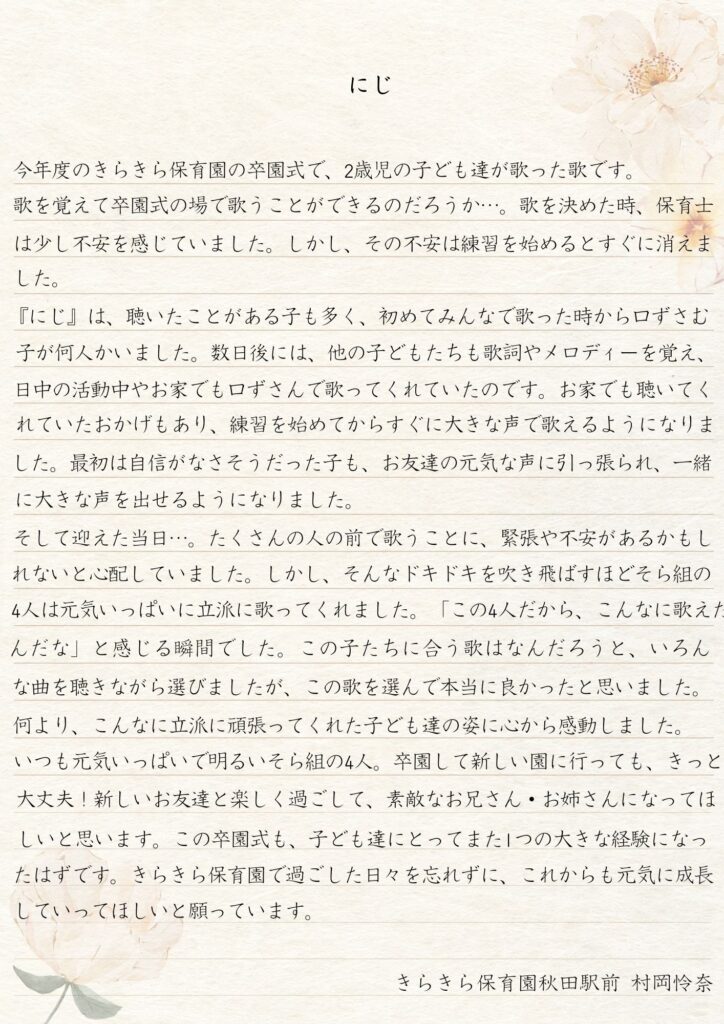 にじ
今年度のきらきら保育園の卒園式で、2歳児の子ども達が歌った歌です。
歌を覚えて卒園式の場で歌うことができるのだろうか…。歌を決めた時、保育士
は少し不安を感じていました。しかし、その不安は練習を始めるとすぐに消えま
した。
『にじ』は、聴いたことがある子も多く、初めてみんなで歌った時から口ずさむ
子が何人かいました。数日後には、他の子どもたちも歌詞やメロディーを覚え、
日中の活動中やお家でも口ずさんで歌ってくれていたのです。お家でも聴いてく
れていたおかげもあり、練習を始めてからすぐに大きな声で歌えるようになりま
した。最初は自信がなさそうだった子も、お友達の元気な声に引っ張られ、一緒
に大きな声を出せるようになりました。
そして迎えた当日…。たくさんの人の前で歌うことに、緊張や不安があるかもし
れないと心配していました。しかし、そんなドキドキを吹き飛ばすほどそら組の
4人は元気いっぱいに立派に歌ってくれました。「この4人だから、こんなに歌えた
んだな」と感じる瞬間でした。この子たちに合う歌はなんだろうと、いろん
な曲を聴きながら選びましたが、この歌を選んで本当に良かったと思いました。
何より、こんなに立派に頑張ってくれた子ども達の姿に心から感動しました。
いつも元気いっぱいで明るいそら組の4人。卒園して新しい園に行っても、きっと
大丈夫！新しいお友達と楽しく過ごして、素敵なお兄さん・お姉さんになってほ
しいと思います。この卒園式も、子ども達にとってまた1つの大きな経験になっ
たはずです。きらきら保育園で過ごした日々を忘れずに、これからも元気に成長
していってほしいと願っています。
きらきら保育園秋田駅前 村岡怜奈